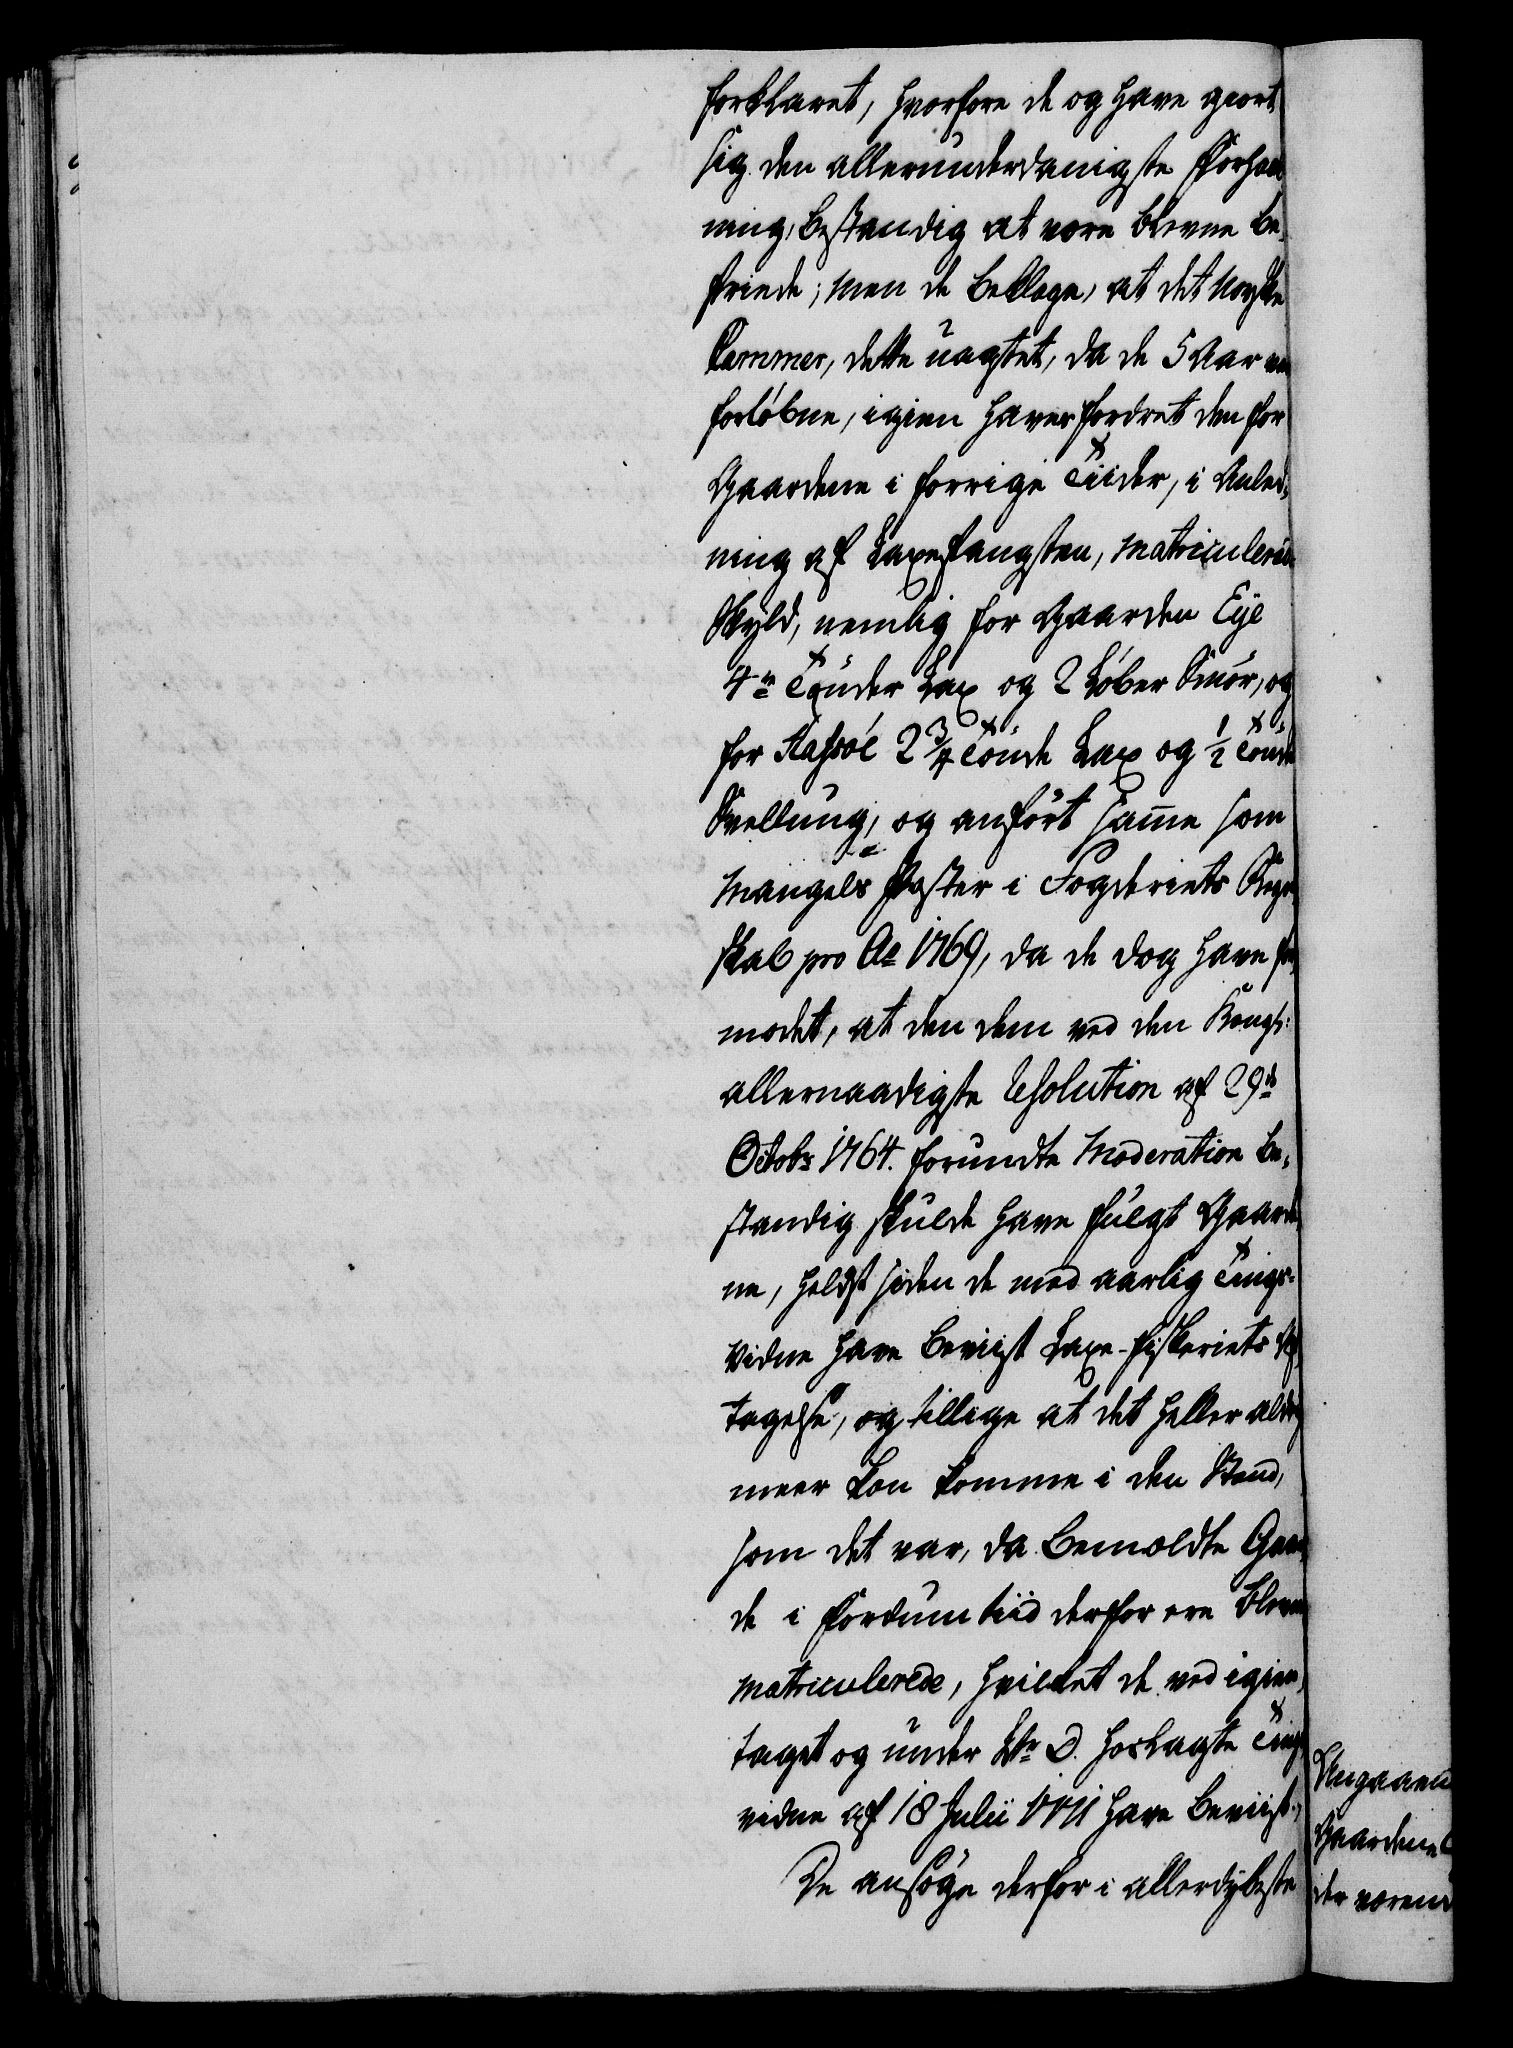 forklaret, hvorfore de og have giort
sig den allerunderdanigste Forhaab
ning, bestandig at være blevne be-
friede; men de beklage, at det Norske
Cammer, dette uagtet, da de 5 Aar var
forløbne, igien haver fordret den for
Gaardene i forrige Tiider, i Anled-
ning af Laxefangsten, matriculerede
Skyld, nemlig for Gaarden Eje
4re Tønder Lax og 2 Løber Smør, og
for 2 3/4 Tønde Lax og 1/2 Tønde
og anført samme som
Mangels Poster i Fogderiets Regn
skab pro Ao 1769, da de dog have for
modet, at den dem ved den Kongl:
allernaadigste Resolution af 29de
Octobr 1764. forundte Moderation be-
standig skulde have fulgt Gaarde
ne, heldst siden de med aarlig Tings-
Vidne have beviist Laxe-fiskeriets Af
tagelse, og tillige at det heller aldrig
meer kan komme i den Stand,
som det var, da bemeldte Gaar
de i fordum tiid derfor ere blevne
matriculerede, hvilket de ved igien-
taget og under Ltr D. hoslagte Tings
vidne af 18 Julii 1771 have beviist.
De ansøge derfor i allerdybeste
Angaaend
Gaardene
der værend